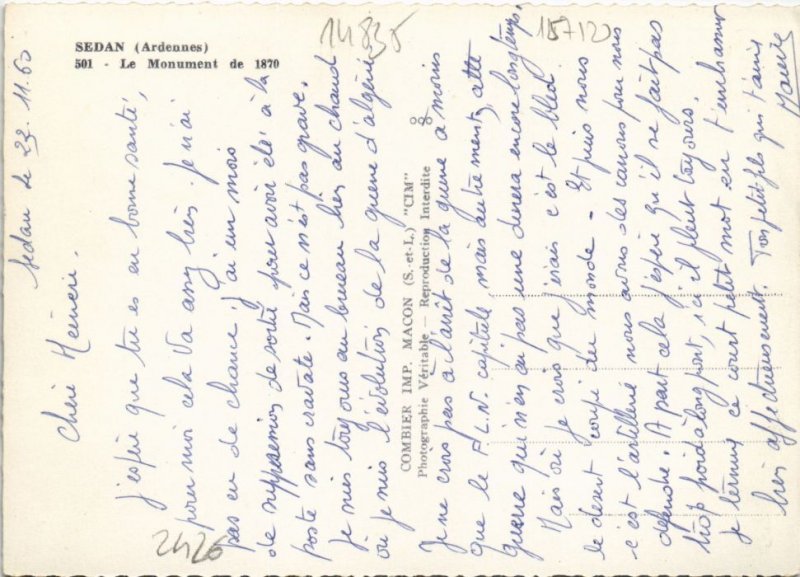 SEDAN (Ardennes)
501 - Le Monument de 1870
14835
157120
2426
COMBIER IMP. MACON (S.-et-L.) "CIM"
Photographie Véritable - Reproduction Interdite
Sedan le 22.11.60
Chère Mémère.
J'espère que tu es en bonne santé,
pour moi cela va assez bien. Je n'ai
pas eu de chance, j'ai un mois
de suppression de sortie pour avoir été à la
poste sans cravate. Mais ce n'est pas grave.
Je suis toujours au bureau bien au chaud
où je suis l'évolution de la guerre d'algérie
Je ne crois pas à l'arrêt de la guerre à moins
que le F.L.N. capitule mais autrement, cette
guerre qui n'en ai pas une durera encore longtemps.
Mais où je crois que j'irais c'est le bled
le desert coupé du monde - Et puis nous
c'est l'artillerie nous avons des canons pour nous
defendre. A part cela j'espère qu'il ne fait pas
trop froid à longpont, ici il pleut toujours.
Je termine ce court petit mot en t'embrassant
bien affectueusement. Ton petit fils qui t'aime